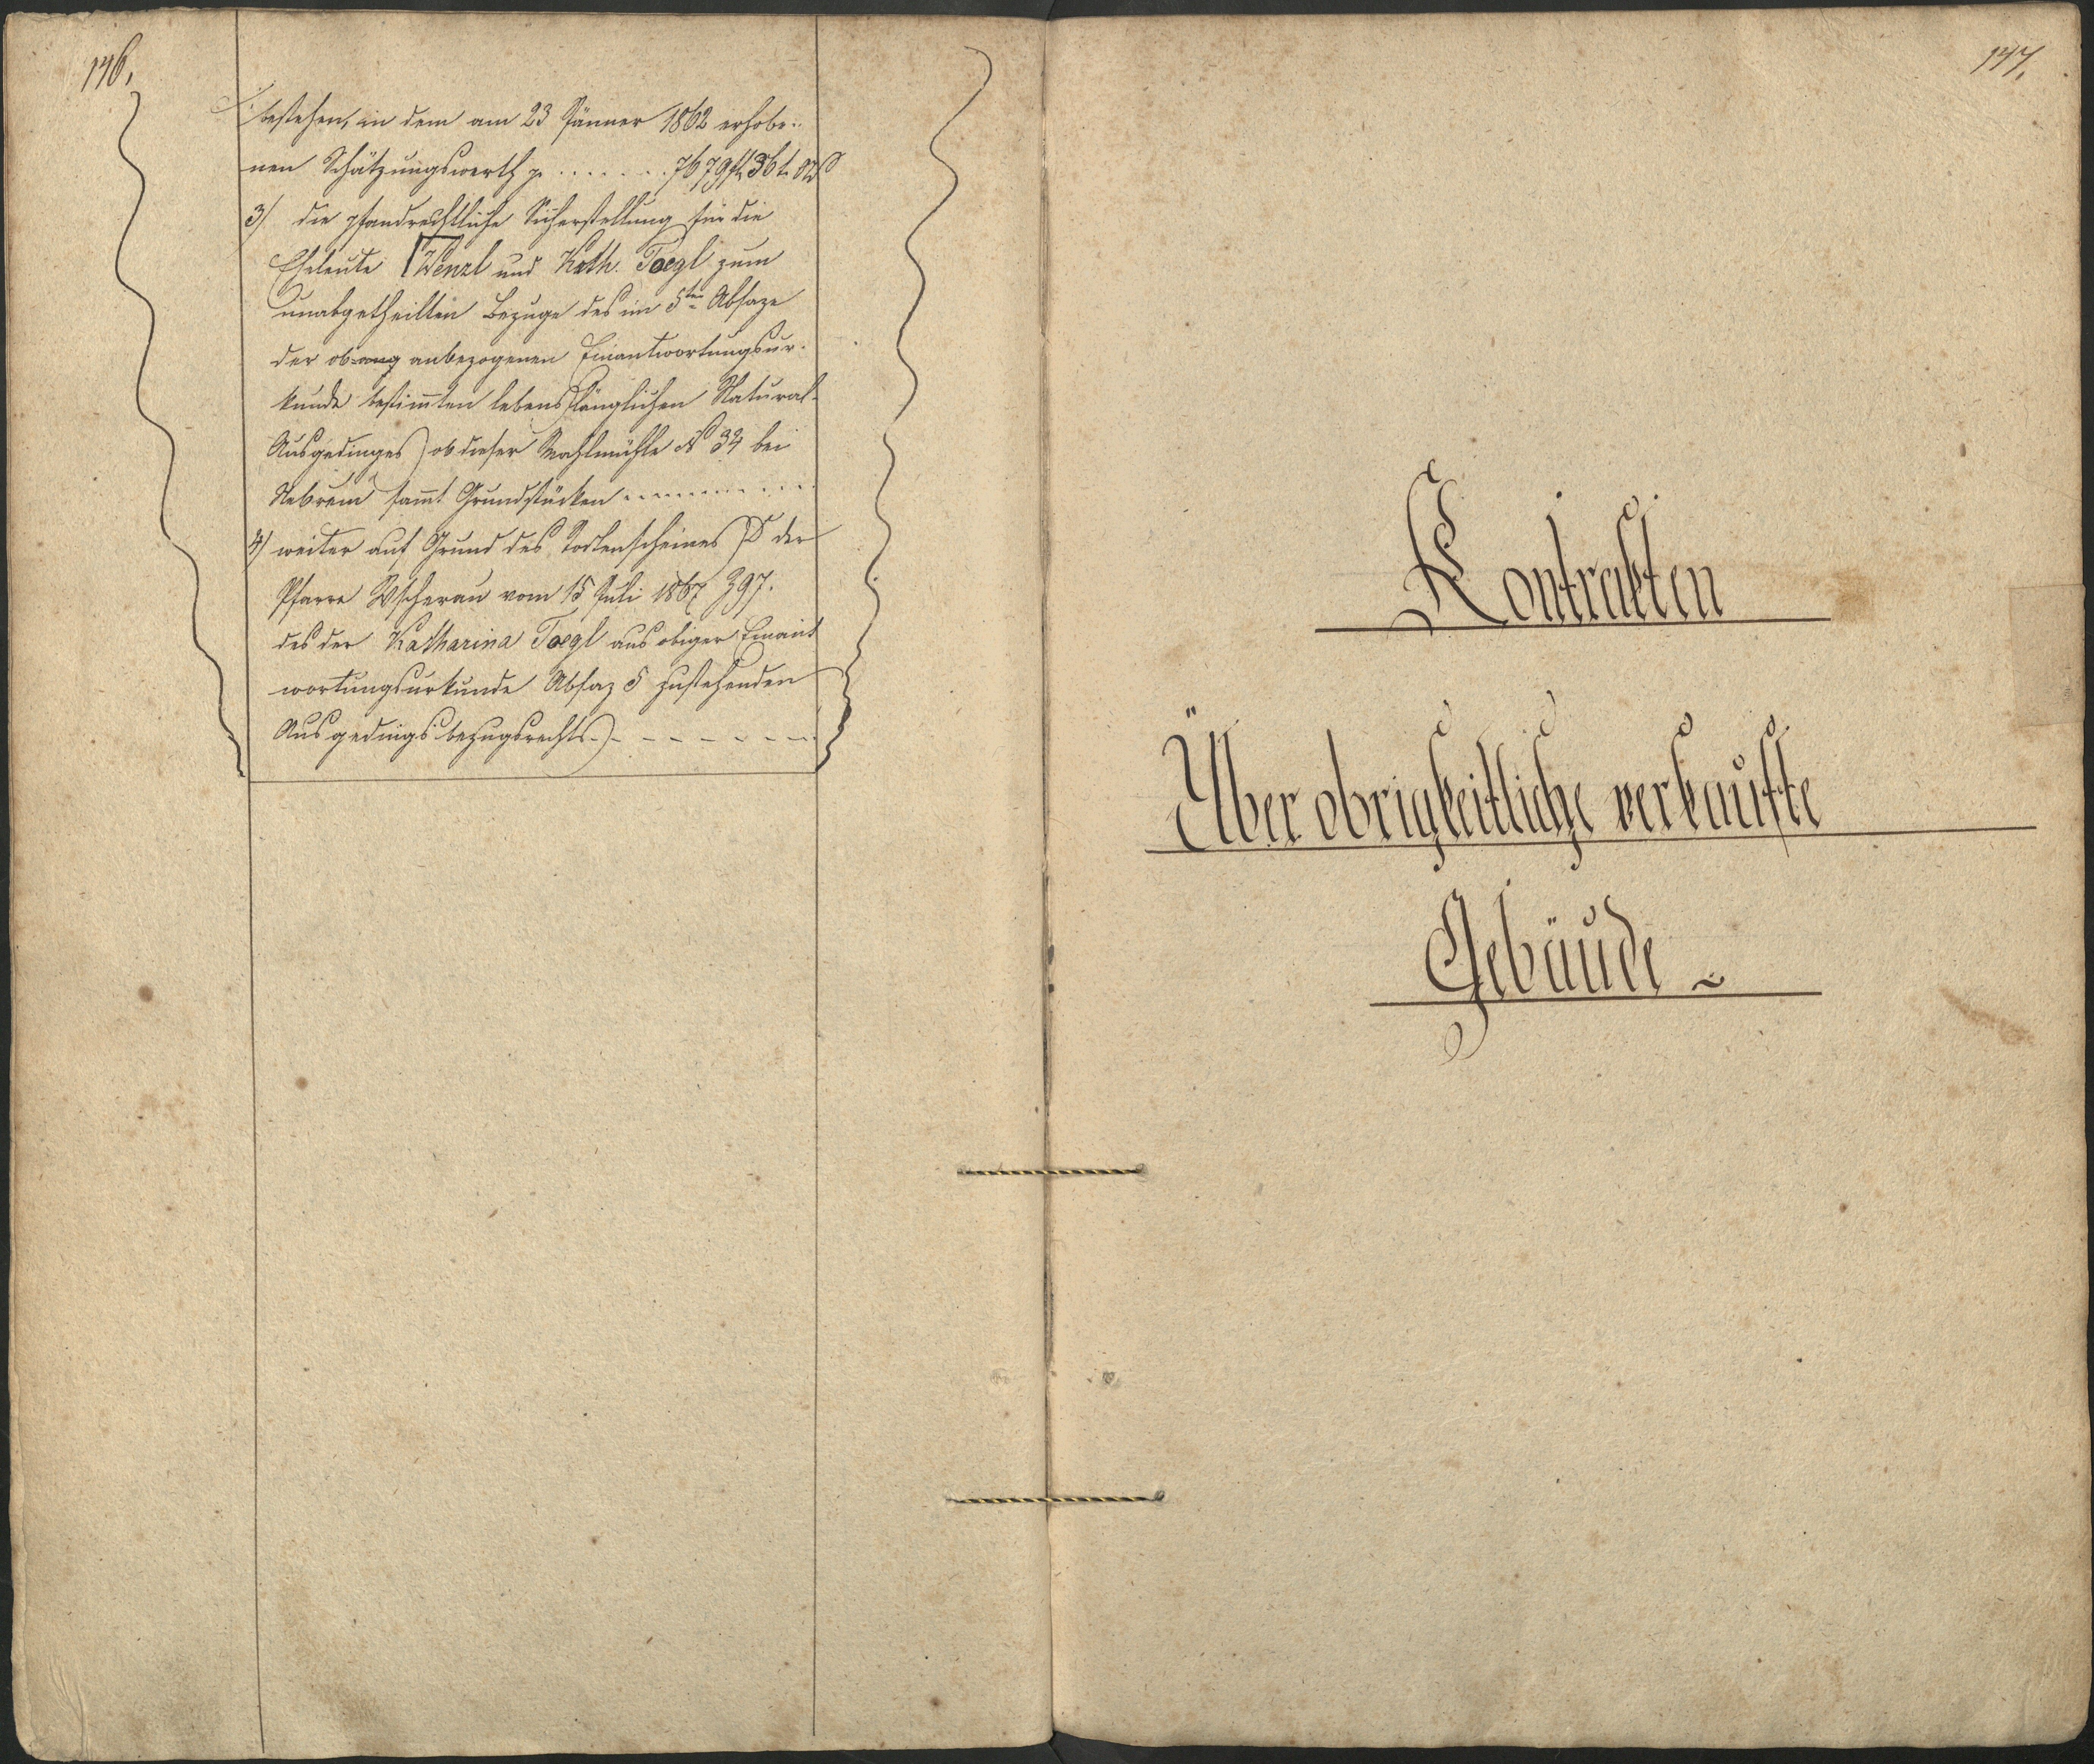 146.
bestehen, in dem am 23 Jänner 1862 erhobe-
nen Schätzungswerth p. ....... 7679 fl 36 k
3/ die pfandrechtliche Sicherstellung für die
Eheleute Wenzl und Kath. Toegl zum
unabgetheilten Bezuge des im 5ten Absaze
der ob anbezogenen Einantwortungsur-
kunde bestimmten lebenslänglichen Natural-
Ausgedinges) ob dieser Mahlmühle No 34 bei
sammt Grundstücken ..........
4/ weiter auf Grund des Todtenscheines der
Pfarre Wscherau vom 15 Juli 1867 Z 97.
des der Katharina Toegl aus obiger Einant
wortungsurkunde Absaz 5 zustehenden
Ausgedingsbezugsrechts.) - - - - - - -
147.
Kontrakten
Über obrigkeitliche verkaufte
Gebäude